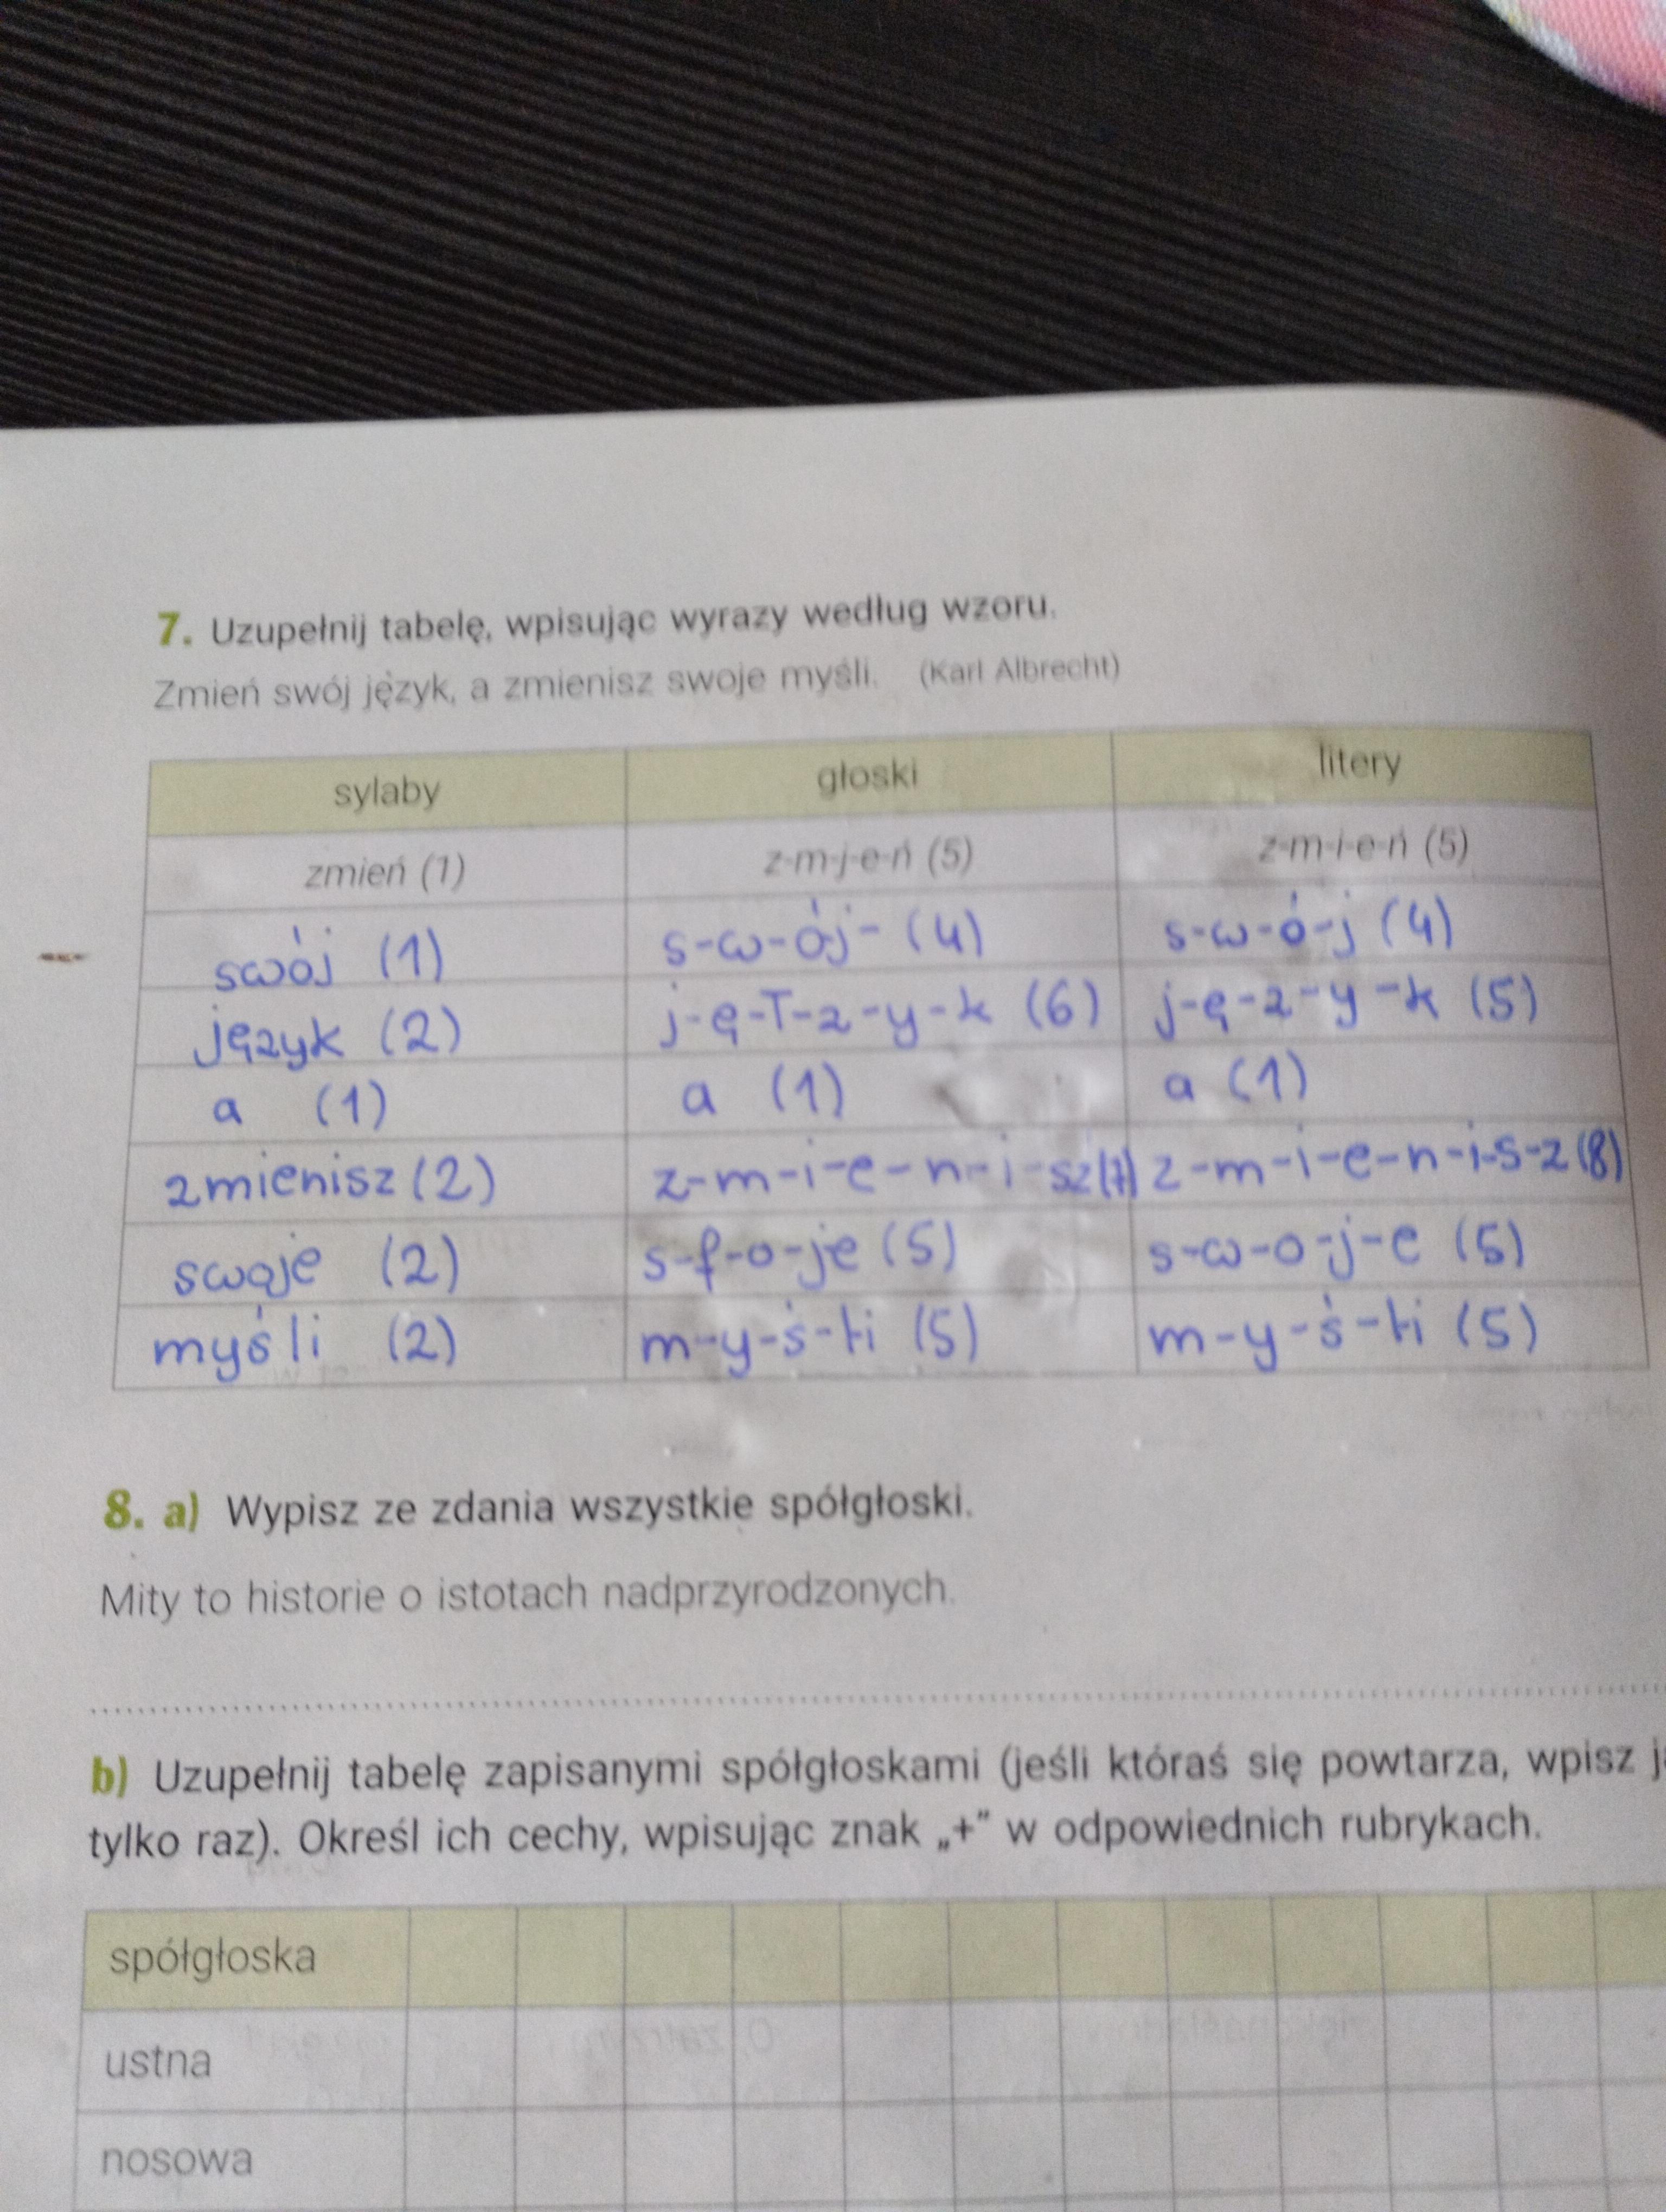 7. Uzupełnij tabelę, wpisując wyrazy według wzoru.
Zmień swój język, a zmienisz swoje myśli. (Karl Albrecht)
sylaby głoski litery
zmień (1) z-m-j-e-ń (5) z-m-i-e-ń (5)
swój (1) s-w-ój- (4) s-w-ó-j (4)
język (2) j-ę-T-z-y-k (6) j-ę-z-y-k (5)
a (1) a (1) a (1)
zmienisz (2) z-m-i-e-n-i-sz (7) z-m-i-e-n-i-s-z (8)
swoje (2) s-f-o-je (5) s-w-o-j-e (5)
myśli (2) m-y-ś-li (5) m-y-ś-li (5)
8. a) Wypisz ze zdania wszystkie spółgłoski.
Mity to historie o istotach nadprzyrodzonych.
b) Uzupełnij tabelę zapisanymi spółgłoskami (jeśli któraś się powtarza, wpisz j
tylko raz). Określ ich cechy, wpisując znak „+” w odpowiednich rubrykach.
spółgłoska
ustna
nosowa